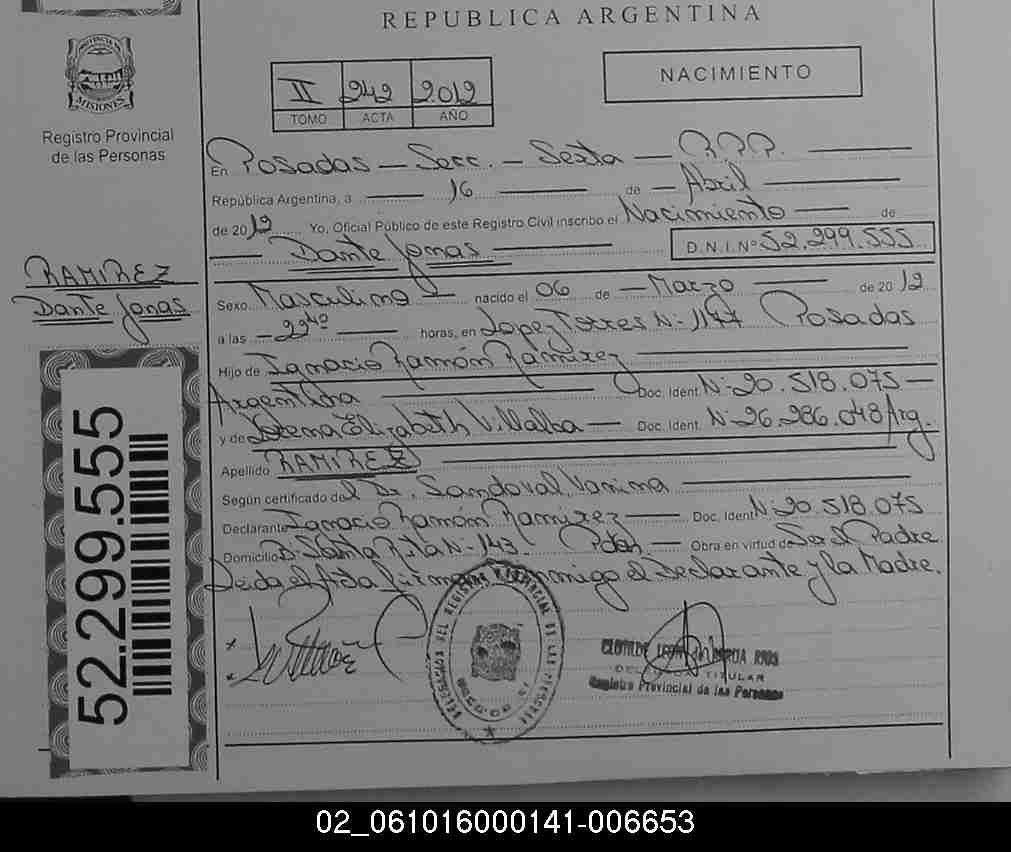 REPUBLICA ARGENTINA
PROVINCIA DE
MISIONES
Registro Provincial
de las Personas
II 242 2.012
TOMO ACTA AÑO
NACIMIENTO
En Posadas - Secc. - Sexta -
República Argentina, a 16 de - Abril
de 2012 Yo, Oficial Público de este Registro Civil inscribo el Nacimiento de
Dante Jonas D.N.I.Nº 52.299.555
RAMIREZ
Dante Jonas
Sexo Masculino nacido el 06 de - Marzo de 2012
a las - 22⁴⁰ horas, en Lopez Torres N- 1147 Posadas
Hijo de Ignacio Ramón Ramirez
Argentina Doc. Ident. N- 20.518.075 -
y de Elizabeth Villalba - Doc. Ident. N- 26.286.048 Arg.
Apellido RAMIREZ
Según certificado del Dr. Sandoval, Vanina
Declarante Ignacio Ramón Ramirez - Doc. Ident N- 20.518.075
Domicilio Bº Santa Rita N- 143 - Pdas - Obra en virtud de Ser el Padre
Leida el Acta conmigo el Declarante y la Madre.
52.299.555
CLOTILDE RIOS
TITULAR
Registro Provincial de las Personas
02_061016000141-006653